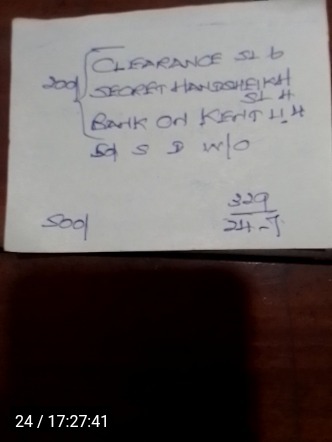 200/ CLEARANCE SL 6
SECRET HANDSHEIKH
SL 4
BANK ON KENT 11.4
50/ S D W/O
500/
329
24-7
24 / 17:27:41